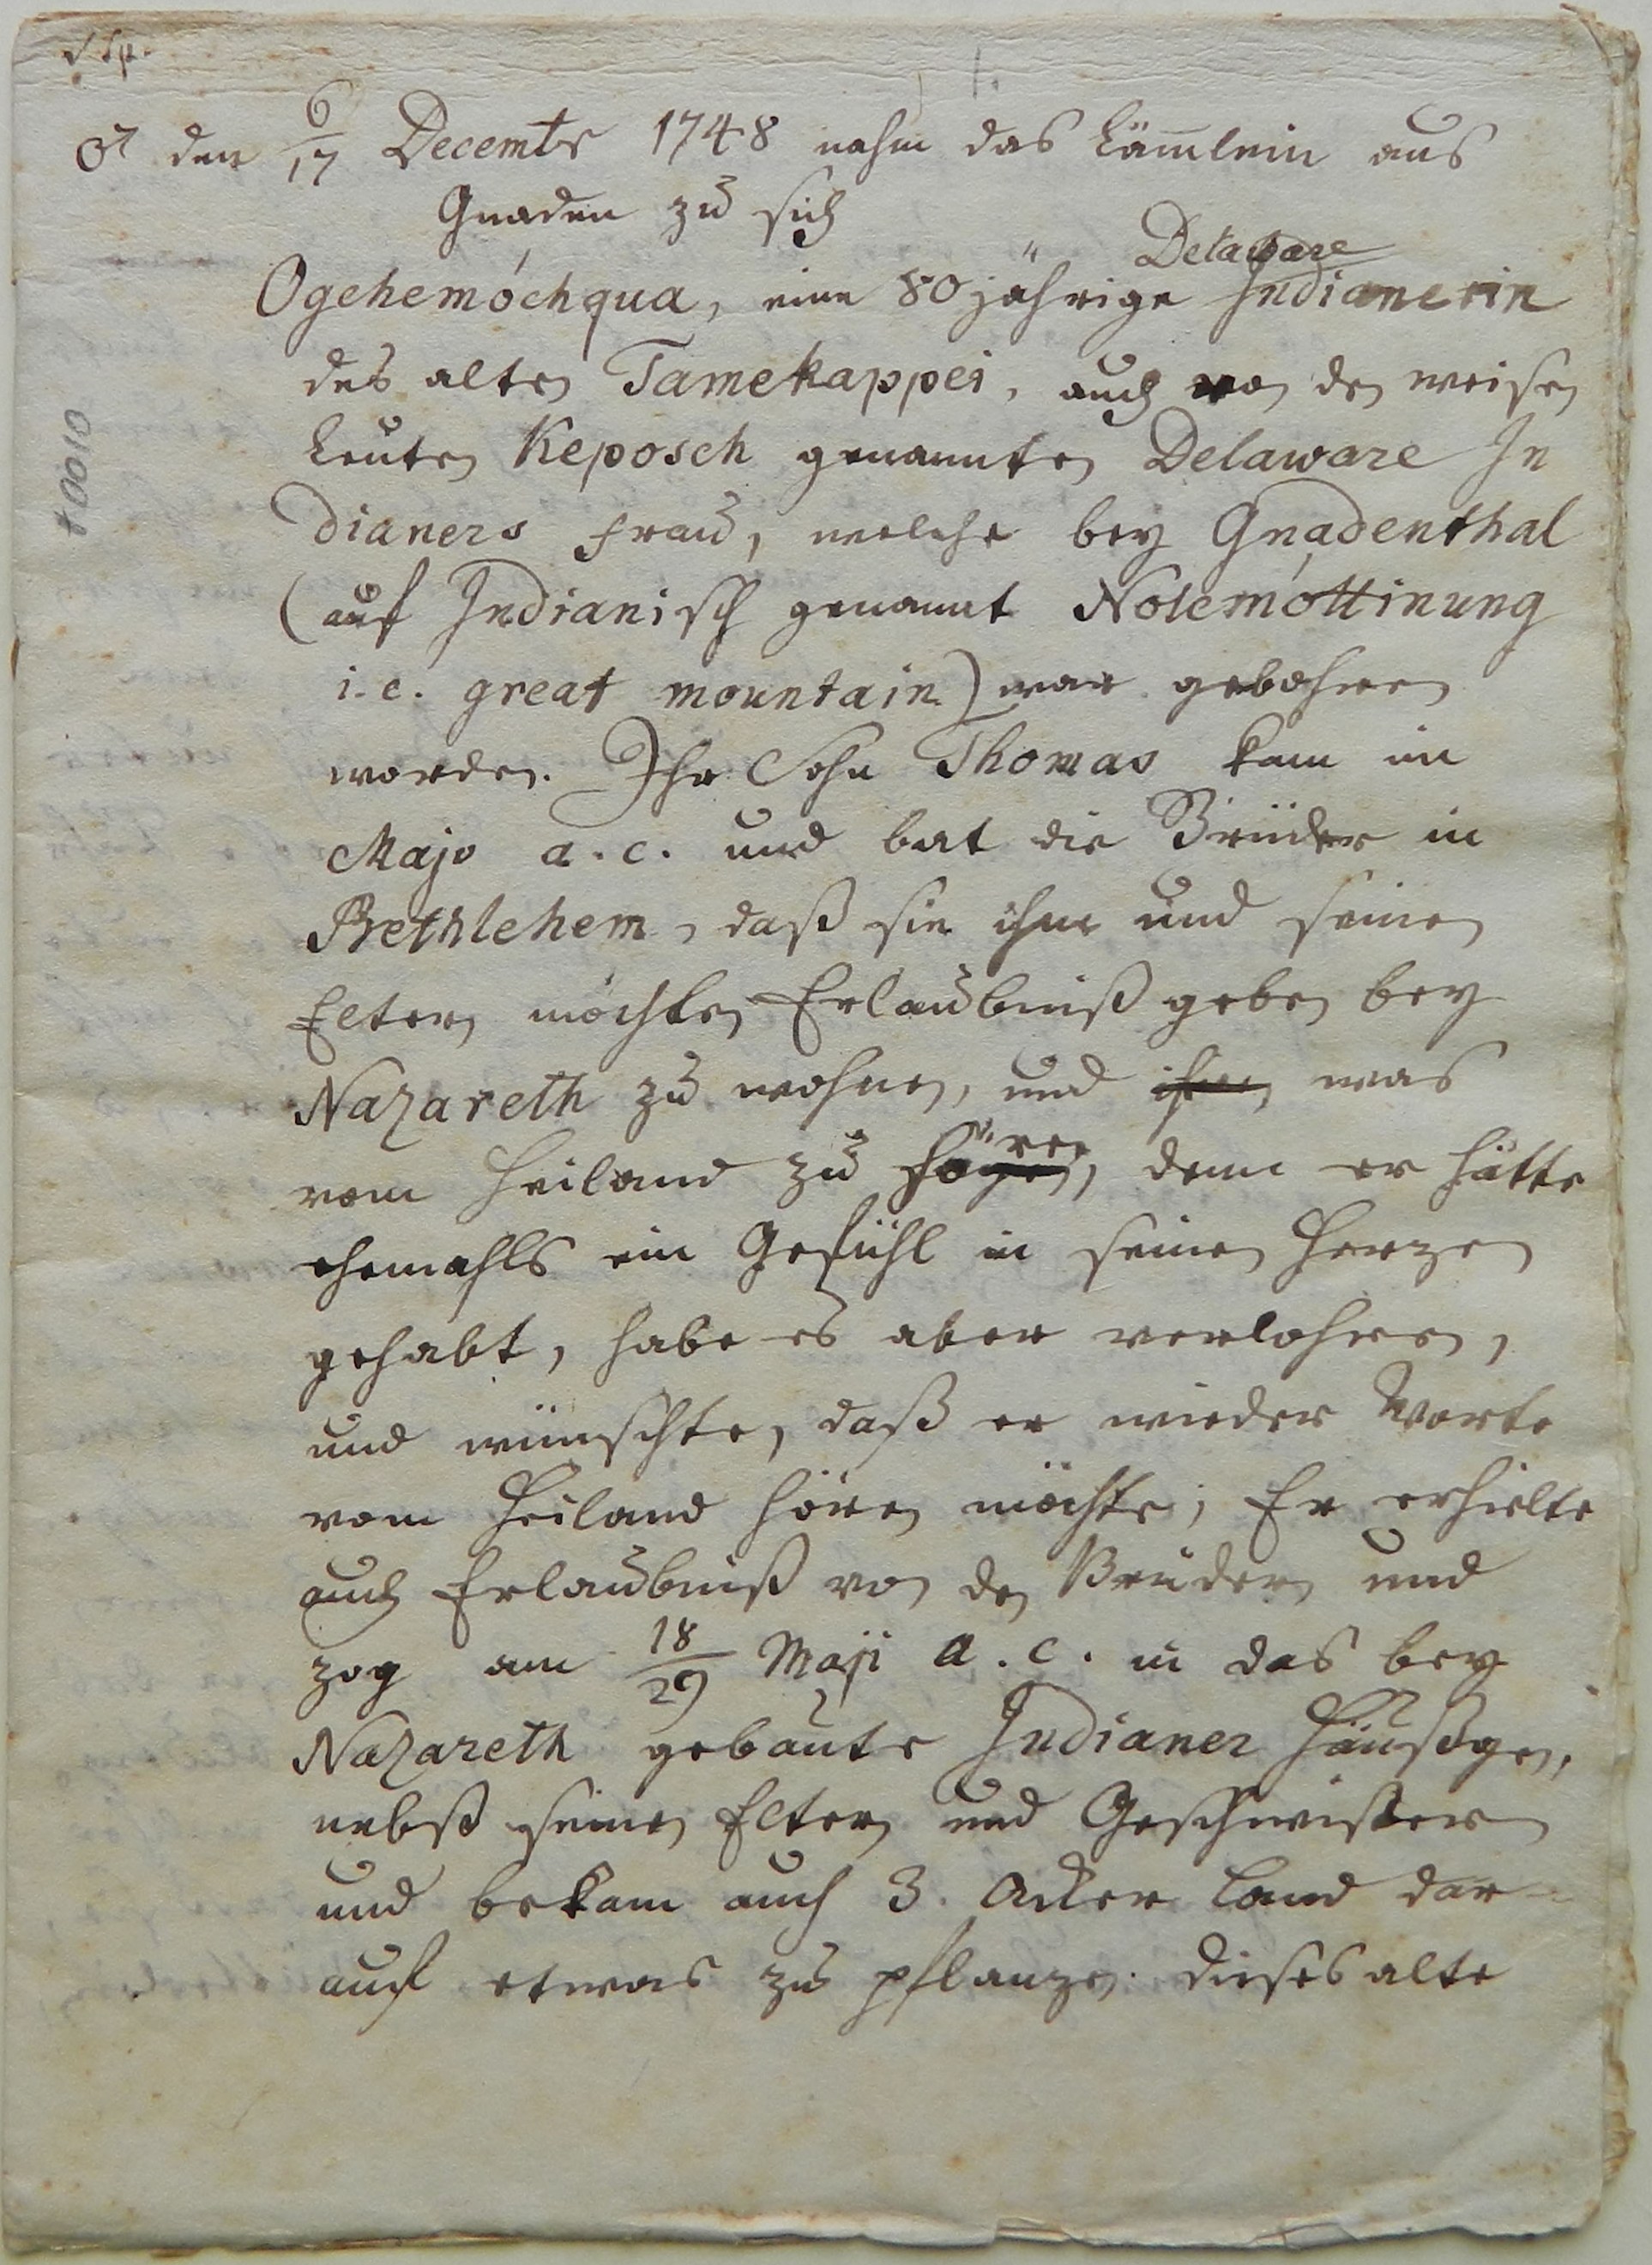 ♂ den 6/17 Decembr 1748 nahm das Lämlein aus
Gnaden zu sich
Delaware
Ogehemóchqua, eine 80 jährige Indianerin
des alten Tamekappei, auch von den weisen
Leuten Keposch genannten Delaware In
dianers Frau, welche bey Gnadenthal
(auf Indianisch genannt Nolemóttinung
i.e. great mountain) war gebohren
worden. Ihr Sohn Thomas kam im
Majo a.c. und bat die Brüder in
Bethlehem, daß sie ihm und seinen
Eltern möchten Erlaubniß geben bey
Nazareth zu wohnen, und ihnen was
vom Heiland zu hören, denn er hätte
ehemahls ein Gefühl in seinen Herzen
gehabt, habe es aber verlohren,
und wünschte, daß er wieder Worte
vom Heiland hören möchte; Er erhielte
auch Erlaubniß von den Brüdern und
zog am 18/29 Maji a.c. in das bey
Nazareth gebaute Indianer Häußgen,
nebst seinen Eltern und Geschwistern
und bekam auch 3. Acker Land dar
auf etwas zu pflanzen. Dieses alte
t0010